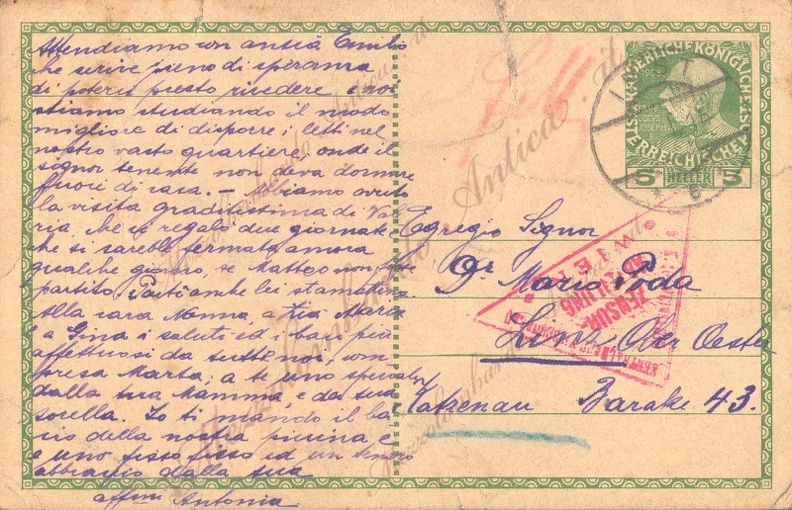 Attendiamo con ansia Emilio
che scrive pieno di speranza
di poterci presto rivedere e noi
stiamo studiando il modo
migliore di disporre i letti nel
nostro vasto quartiere onde il
signor tenente non deva dormire
fuori di casa. – Abbiamo avuto
la visita graditissima di
che ci regalò due giornate
che si sarebbe fermata ancora
qualche giorno, se Matteo non
partito. Partì anche lei stamattina
Alla cara Nonna a zia Maria
e a Gina i saluti ed i baci più
affettuosi da tutte noi, com
presa Marta; a te uno speciale
dalla tua Mamma e da tua
sorella. Io ti mando il ba
cio della nostra piccina e
e uno fisso fisso ed un tenero
abbraccio dalla tua
affma Antonia
KAISERLICHE KÖNIGLICHE
ÖSTERREICHISCHE
5 HELLER 5
Egregio Signor
Dr. Mario Poda
Linz Ober Oester
Katzenau Barake 43.
ZENSUR
ABTEILUNG
WIEN
Mezzolombardo Antica.it